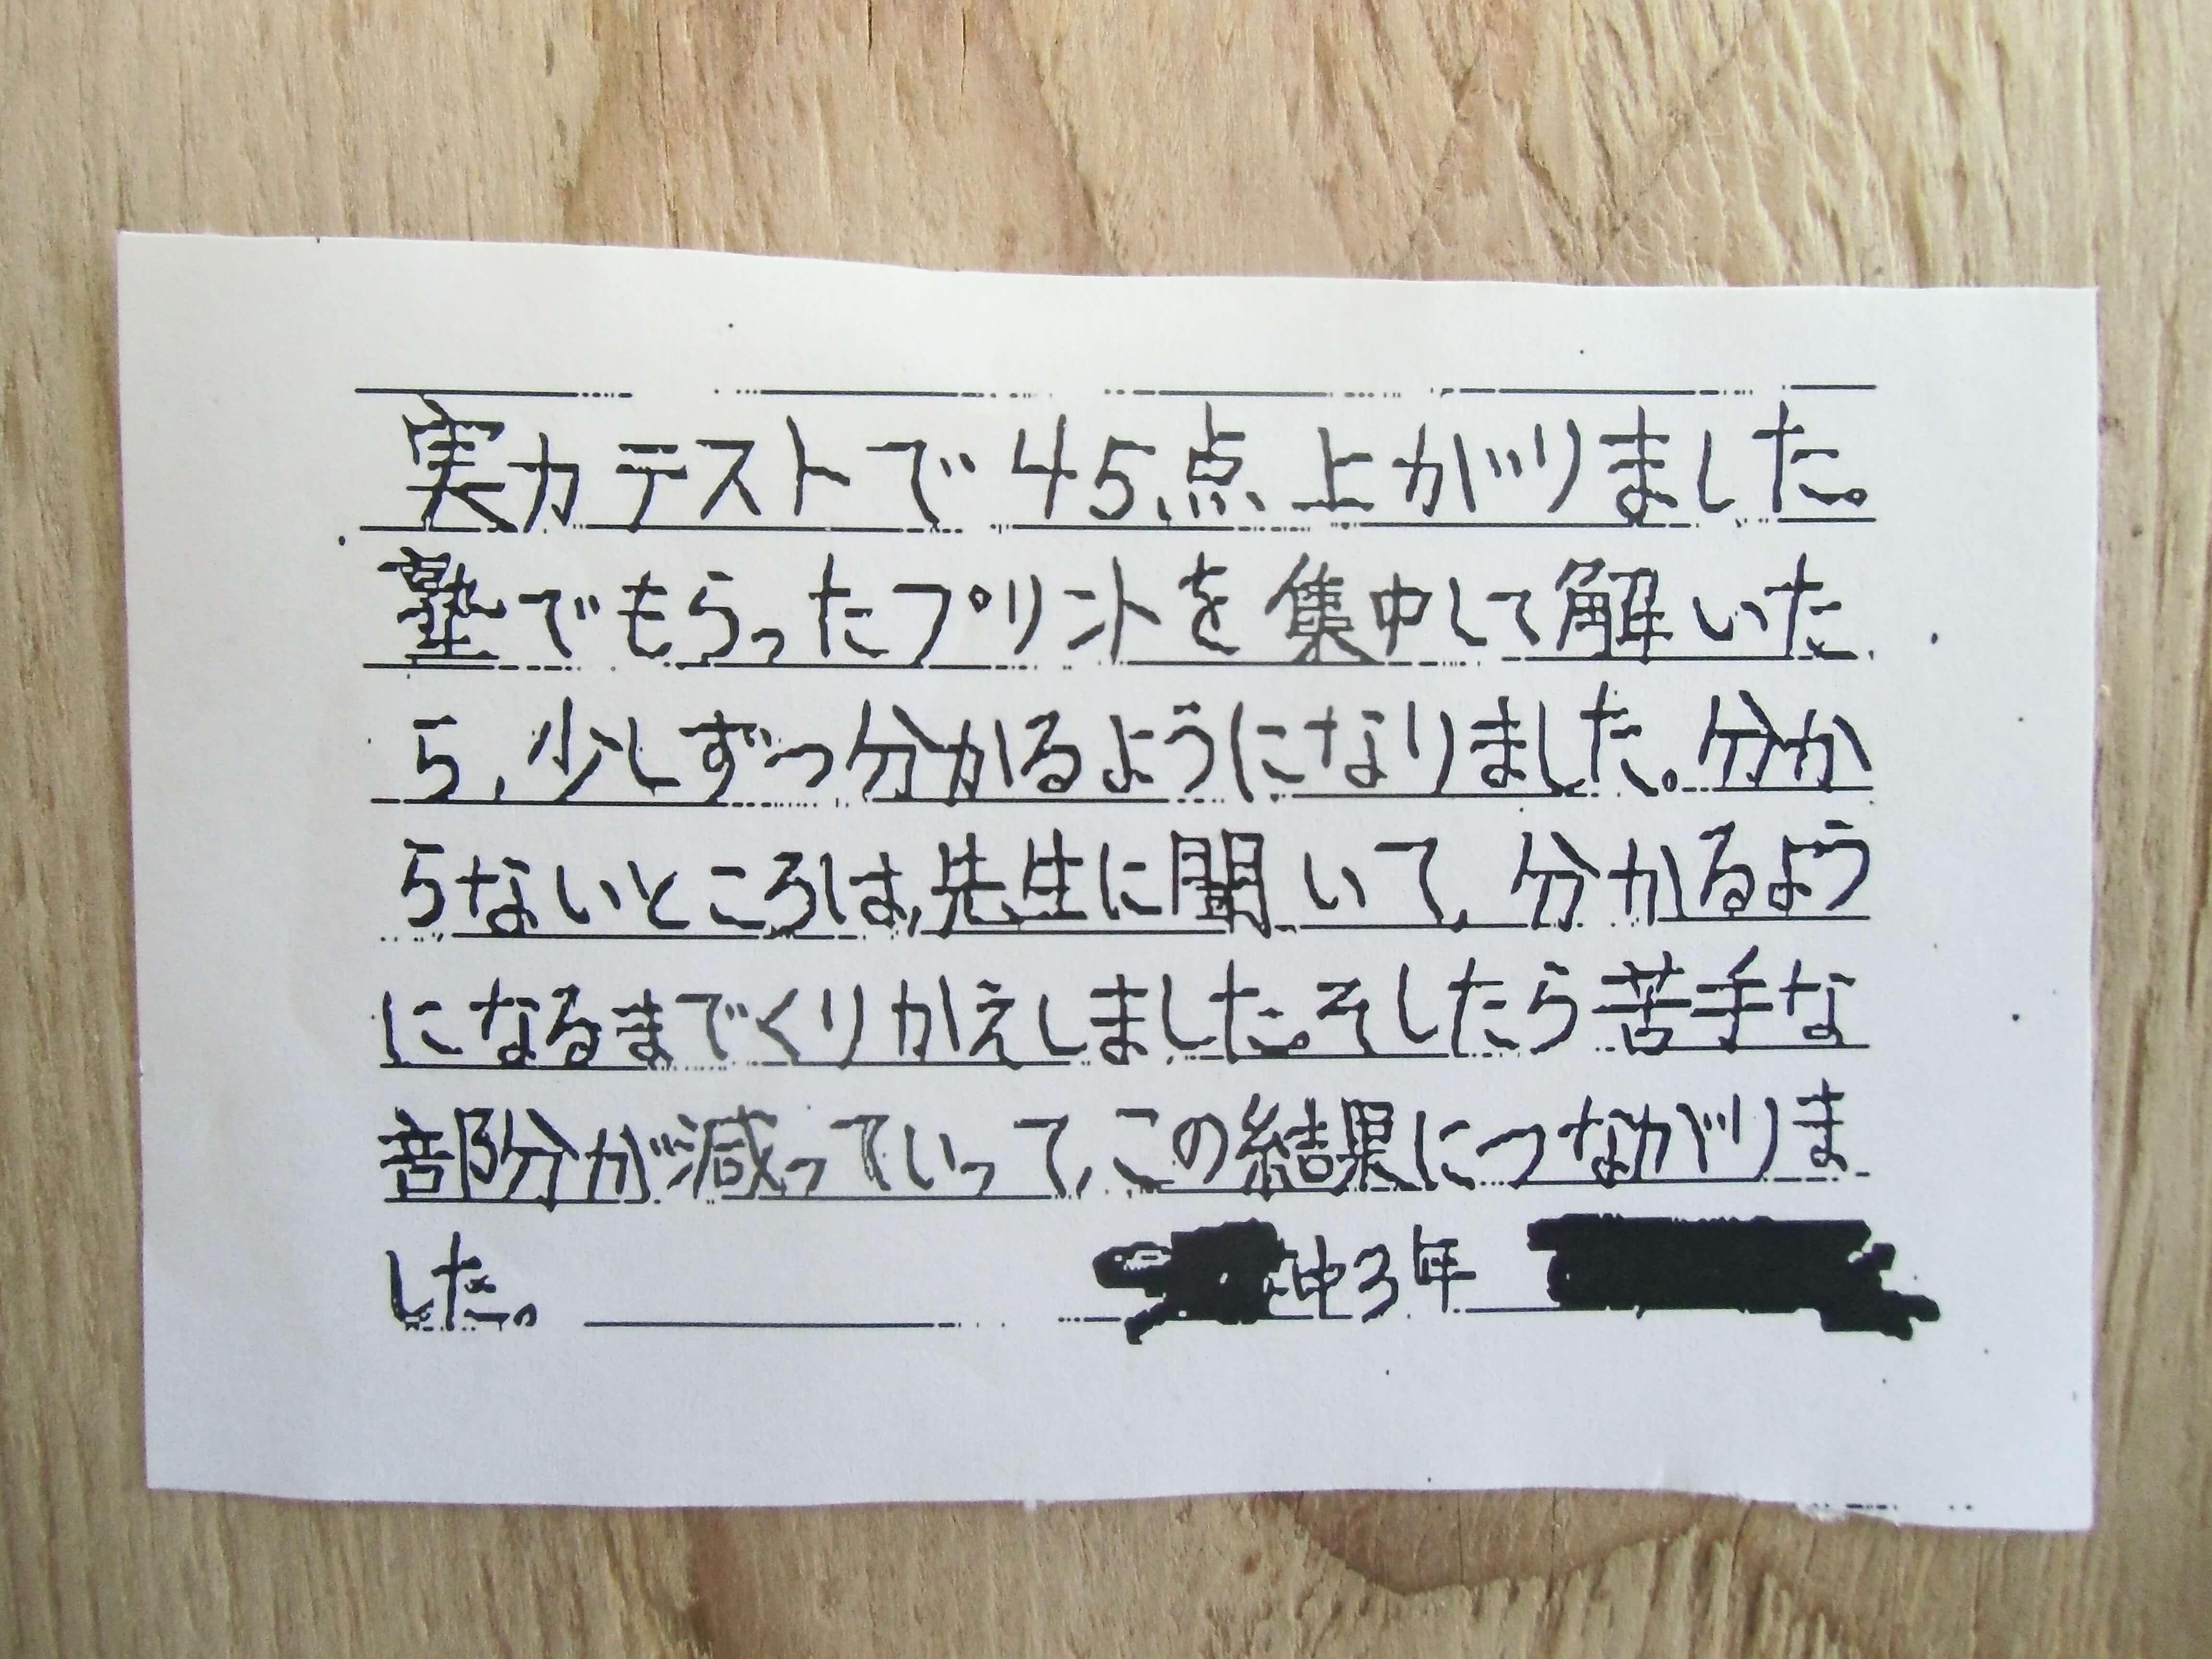 実力テストで45点上がりました。
塾でもらったプリントを集中して解いた
ら,少しずつ分かるようになりました。分か
らないところは,先生に聞いて,分かるよう
になるまでくりかえしました。そしたら苦手な
部分が減っていって,この結果につながりま
した。
中3年